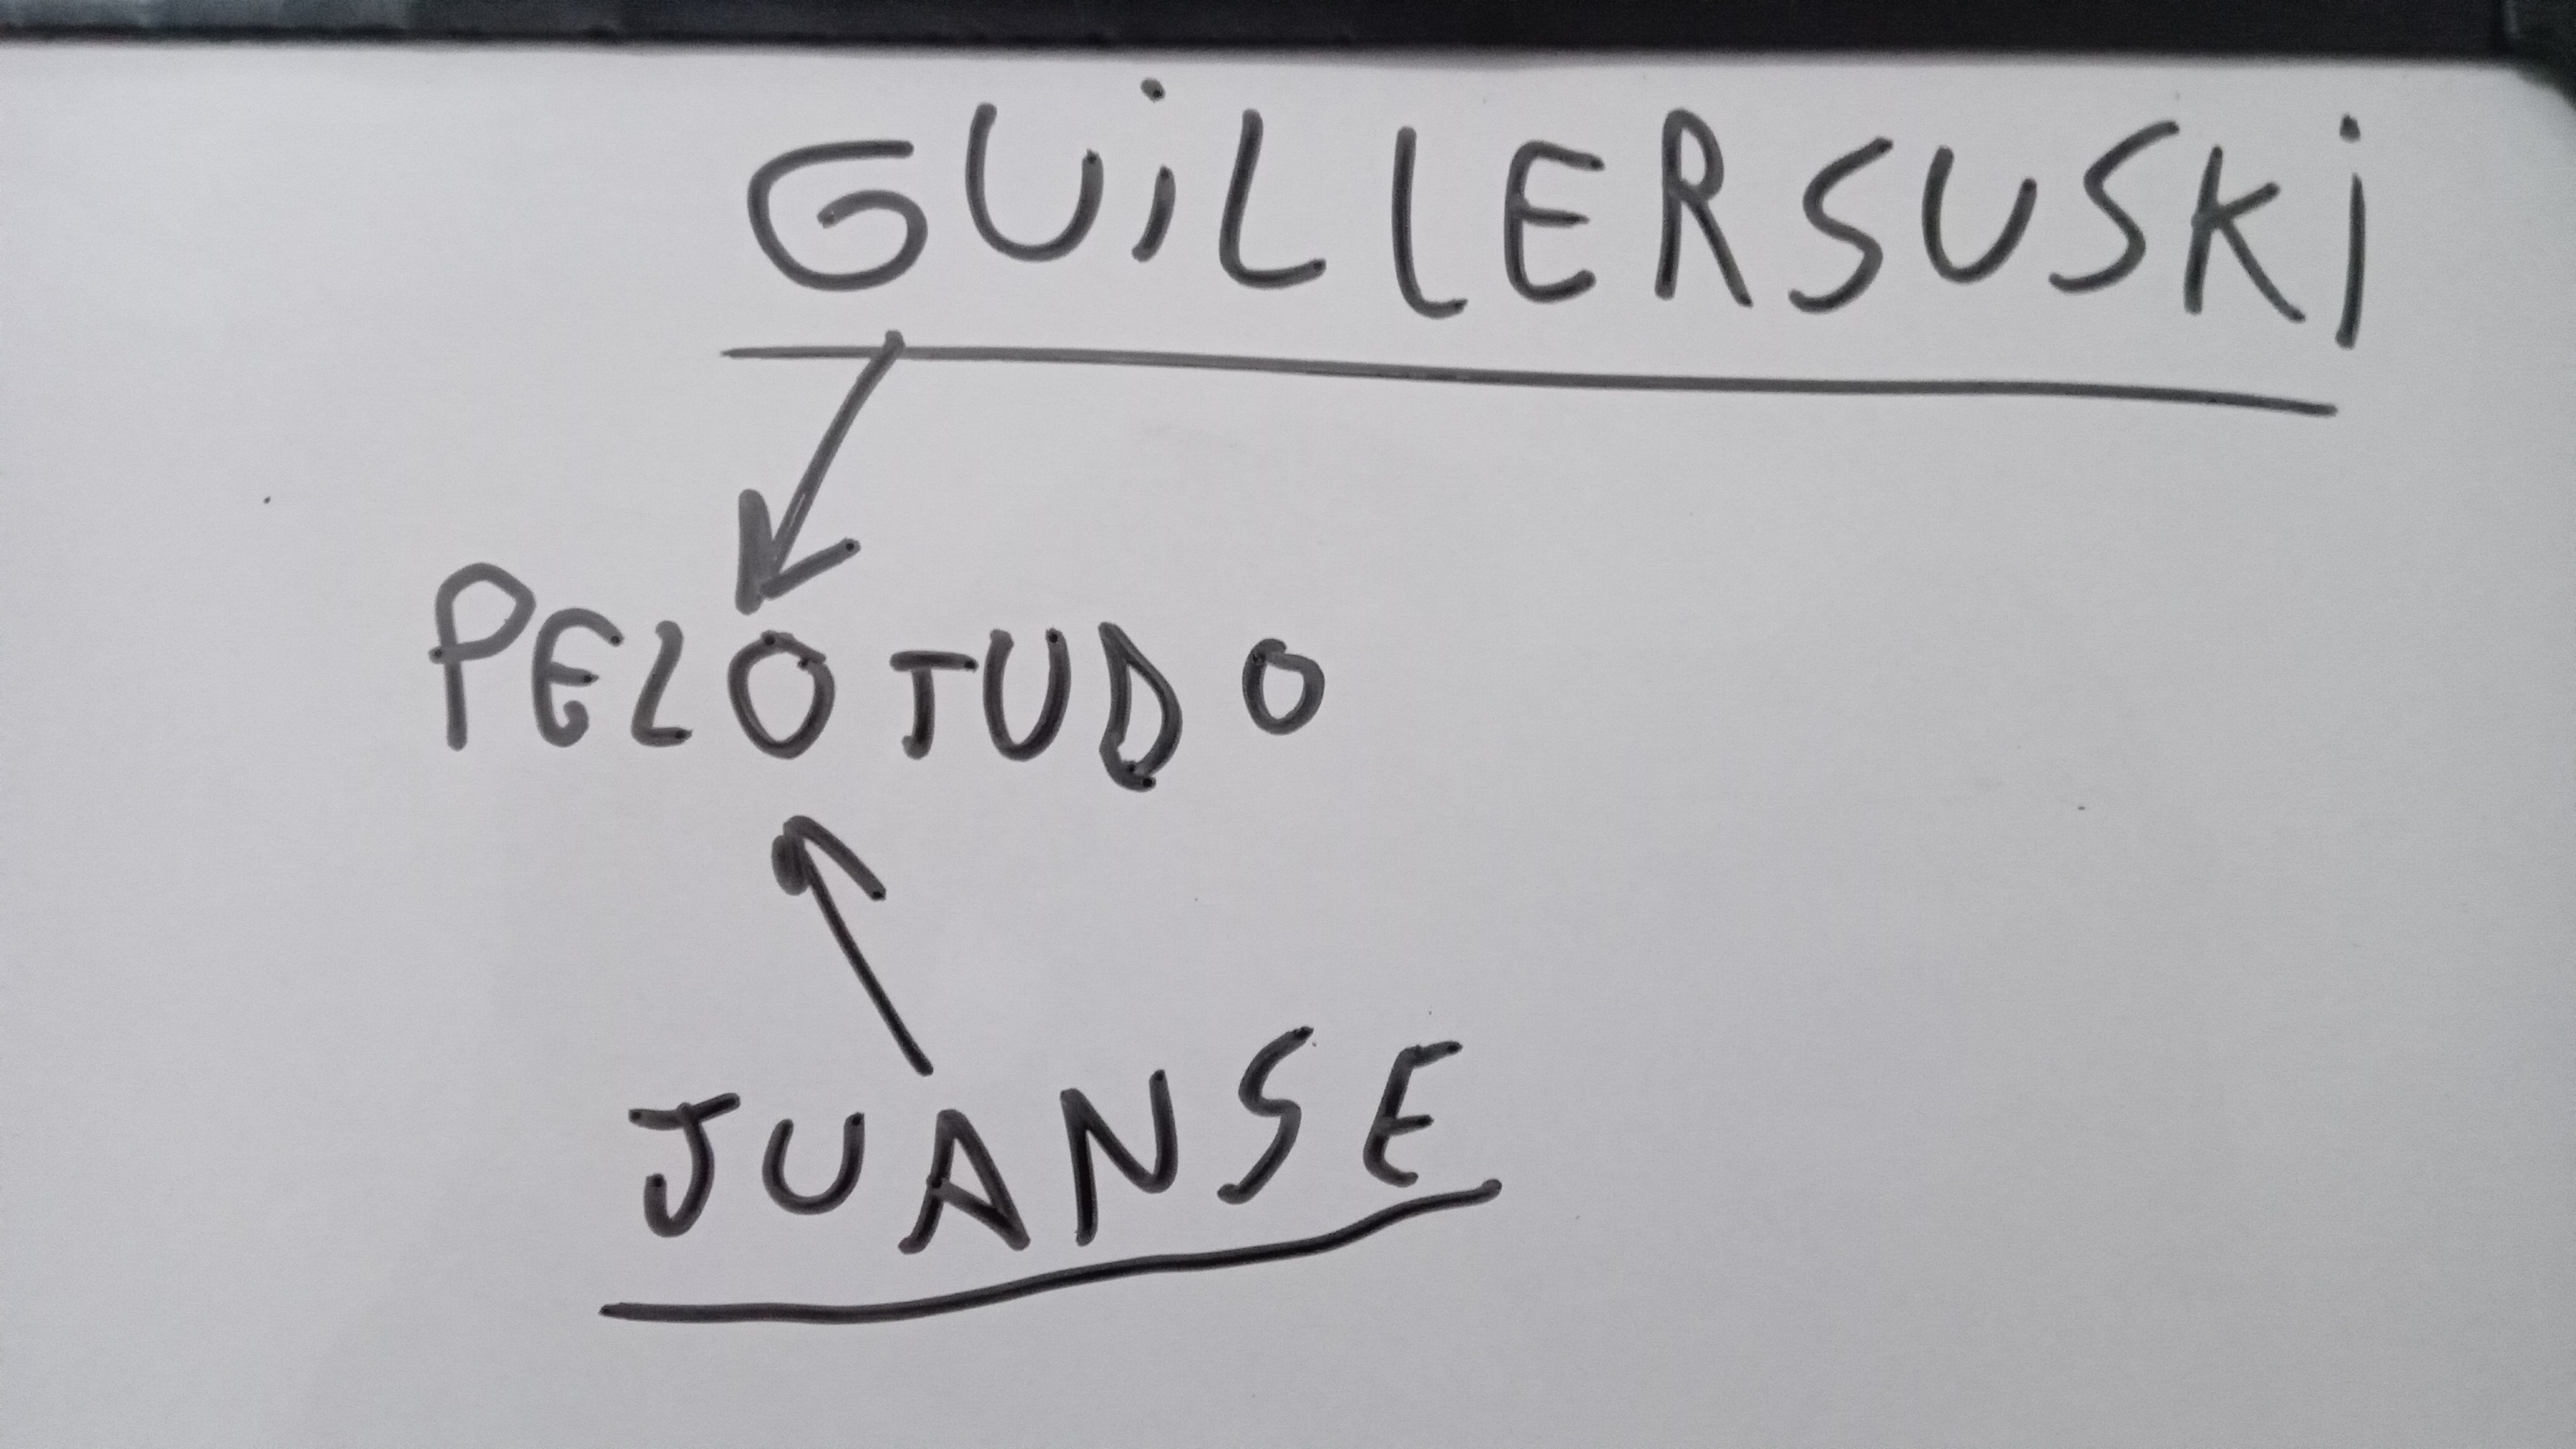 GUiLLERSUSKi
PELOTUDO
JUANSE